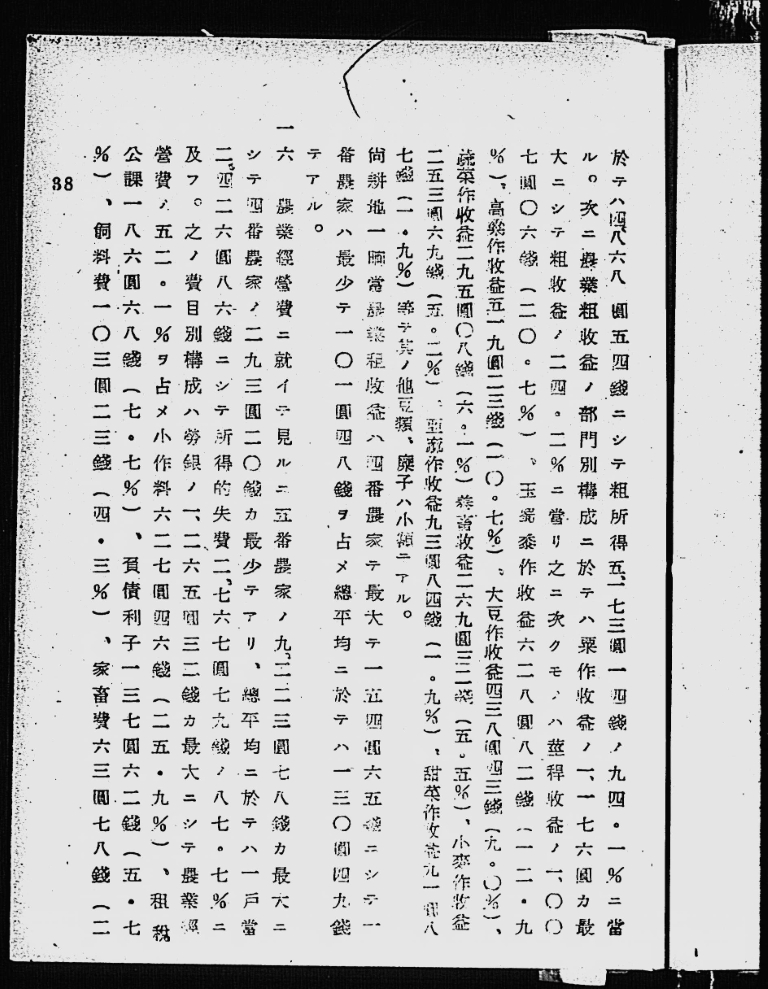 於テハ四、八六八圓五四錢ニシテ粗所得五、一七三圓一四錢ノ九四・一％ニ當
ル。次ニ農業粗收益ノ部門別構成ニ於テハ粟作收益ノ一、一七六圓カ最
大ニシテ粗收益ノ二四。二％ニ當リ之ニ次クモノハ莖稈收益ノ一、〇〇
七圓〇六錢（二〇。七％）、玉蜀黍作收益六二八圓八二錢（一二・九
％）、高粱作收益五一九圓二三錢（一〇。七％）、大豆作收益四三八圓四三錢（九。〇％）、
蔬菜作收益二九五圓〇八錢（六。一％）養畜收益二六九圓三二錢（五。五％）、小麥作收益
二五三圓六九錢（五。二％）、亞麻作收益九三圓八四錢（一。九％）、甜菜作收益九一圓八
七錢（一。九％）等テ其ノ他豆類、糜子ハ小額ニアル。
尚耕地一晌當農業粗收益ハ四番農家テ最大テ一五四圓六五錢ニシテ一
番農家ハ最少テ一〇一圓四八錢ヲ占メ總平均ニ於テハ一三〇圓四九錢
テアル。
一六　農業經營費ニ就イテ見ルニ五番農家ノ九、二二三圓七八錢カ最大ニ
シテ四番農家ノ二九三圓二〇錢カ最少テアリ、總平均ニ於テハ一戸當
二、四二六圓八六錢ニシテ所得的失費二、七六七圓七九錢ノ八七。七％ニ
及フ。之ノ費目別構成ハ勞銀ノ一、二六五圓三二錢カ最大ニシテ農業經
營費ノ五二。一％ヲ占メ小作料六二七圓四六錢（二五・九％）、租稅
公課一八六圓六八錢（七・七％）、負債利子一三七圓六二錢（五・七
％）、飼料費一〇三圓二三錢（四・三％）、家畜費六三圓七八錢（二
38